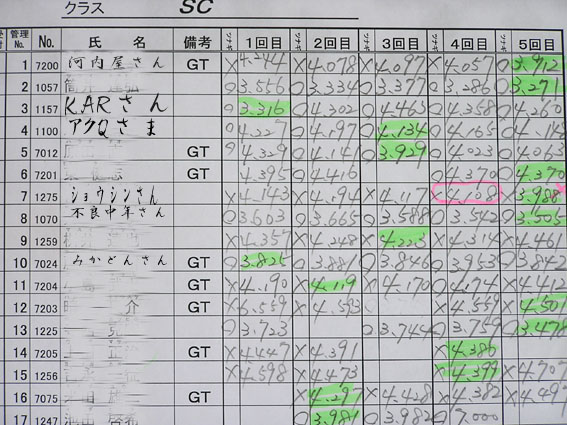 クラス SC
管理No. No. 氏 名 備考 ツナギ 1回目 ツナギ 2回目 ツナギ 3回目 ツナギ 4回目 ツナギ 5回目
1 7200 河内屋さん GT X 4.244 X 4.078 X 4.097 X 4.057 O 3.912
2 1057 O 3.556 O 3.334 O 3.377 O 3.286 O 3.271
3 1157 KARさん O 3.316 O 4.202 O 4.463 O 4.358 O 4.260
4 1100 アクQさま O 4.227 O 4.197 O 4.134 O 4.165 O
5 7012 GT O 4.329 O 4.141 O 3.929 O 4.023 O 4.063
6 7201 GT 4.395 O 4.416 O 4.370 O 4.370
7 1275 ショウシンさん X 4.143 X 4.194 X 4.117 X 4.108 X 3.988
8 1070 不良中年さん O 3.603 O 3.665 O 3.588 O 3.542 O 3.505
9 1259 X 4.357 X 4.248 X 4.223 X 4.314 X 4.461
10 7024 みかどんさん GT O 3.825 O 3.881 O 3.846 O 3.953 O 3.842
11 7204 GT X 4.190 X 4.119 X 4.170 X 4.174 X 4.412
12 7203 介 GT X 6.559 X 4.583 X 4.559 X 4.501
13 1225 O 3.723 O 3.744 O 3.759 O 3.478
14 7205 GT X 4.447 X 4.391 X 4.386
15 1256 X 4.598 X 4.473 X 4.399 X 4.707
16 7075 GT X 4.297 X 4.428 X 4.382 X 4.497
17 1247 O 3.981 O 3.982 O 7.000